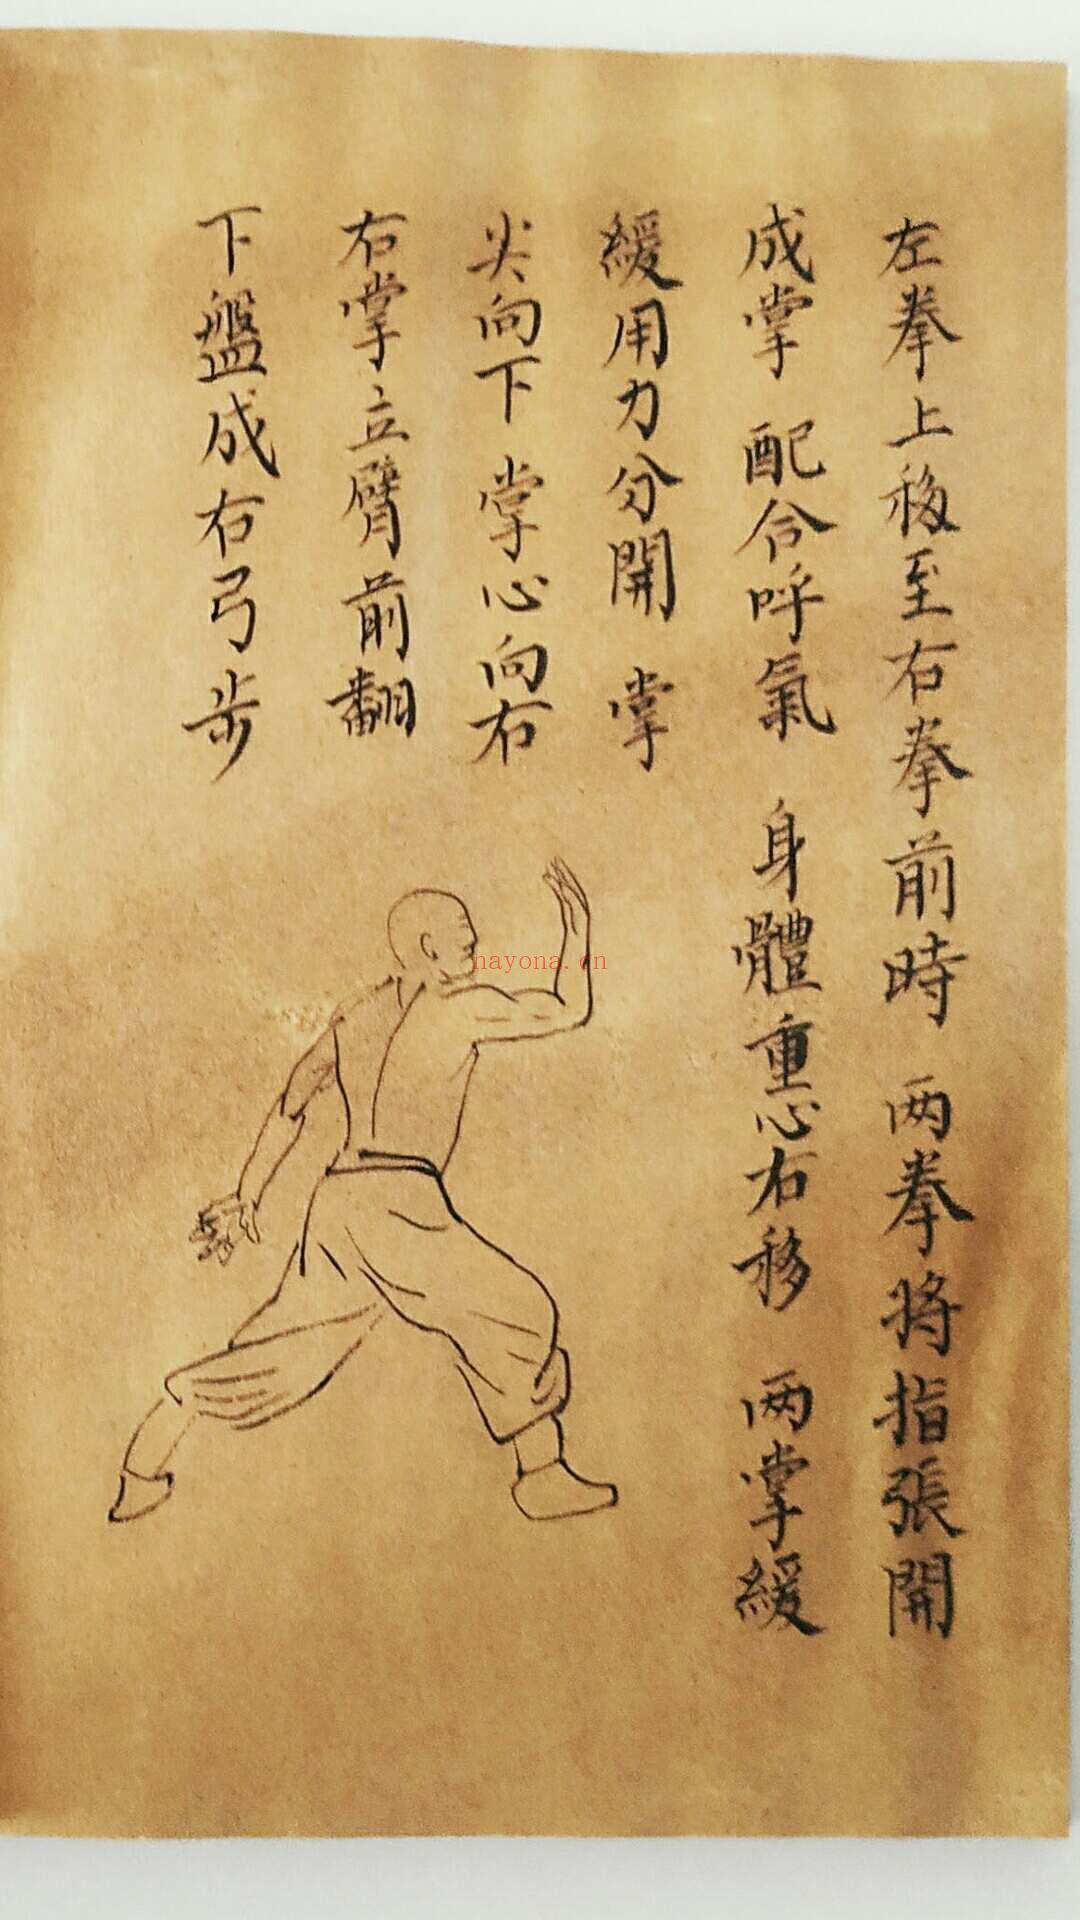 左拳上移至右拳前時 两拳将指張開
成掌 配合呼氣 身體重心右移 两掌緩
緩用力分開 掌
尖向下 掌心向右
右掌立臂前翻
下盤成右弓步
nayona.cn